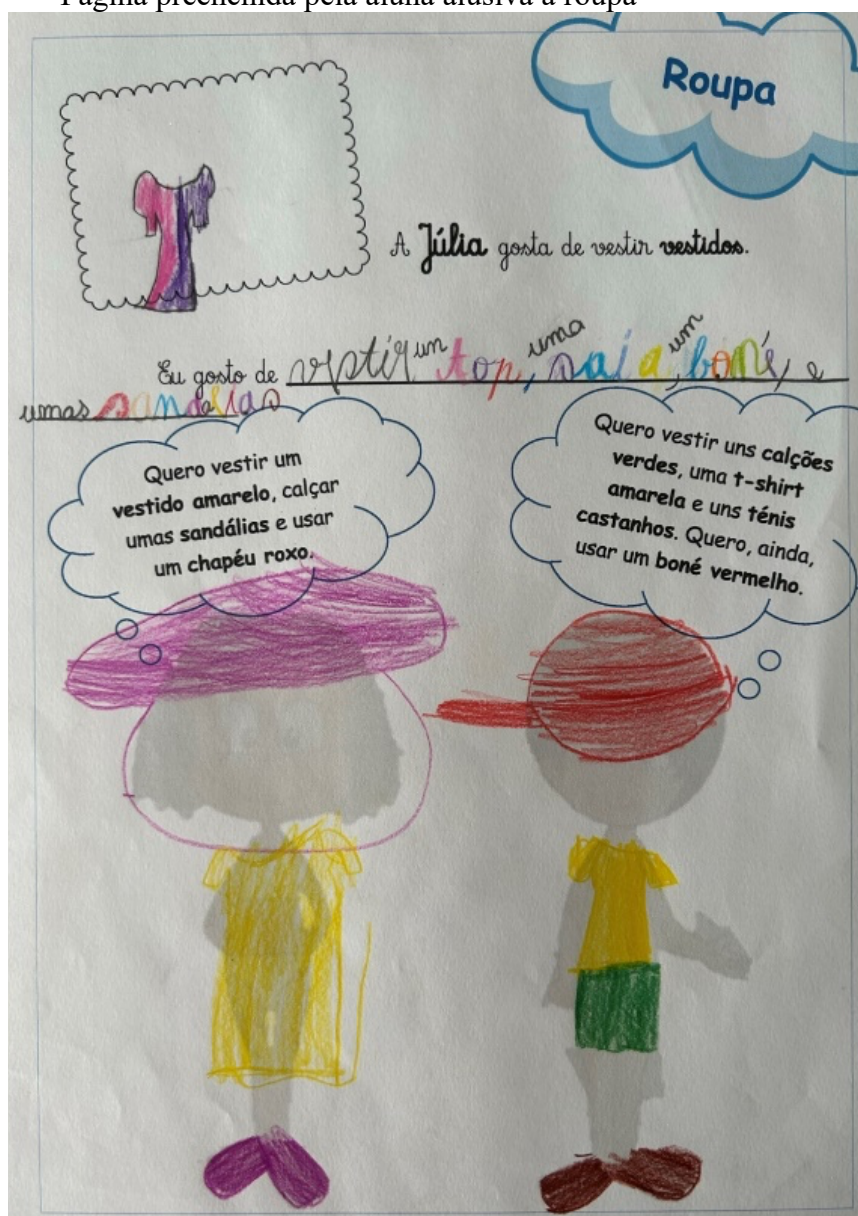 Página preenchida pela aluna alusiva à roupa
Roupa
A Júlia gosta de vestir vestidos.
Eu gosto de vestir um top, uma saia, um boné, e
umas sandálias
Quero vestir um
vestido amarelo, calçar
umas sandálias e usar
um chapéu roxo.
Quero vestir uns calções
verdes, uma t-shirt
amarela e uns ténis
castanhos. Quero, ainda,
usar um boné vermelho.